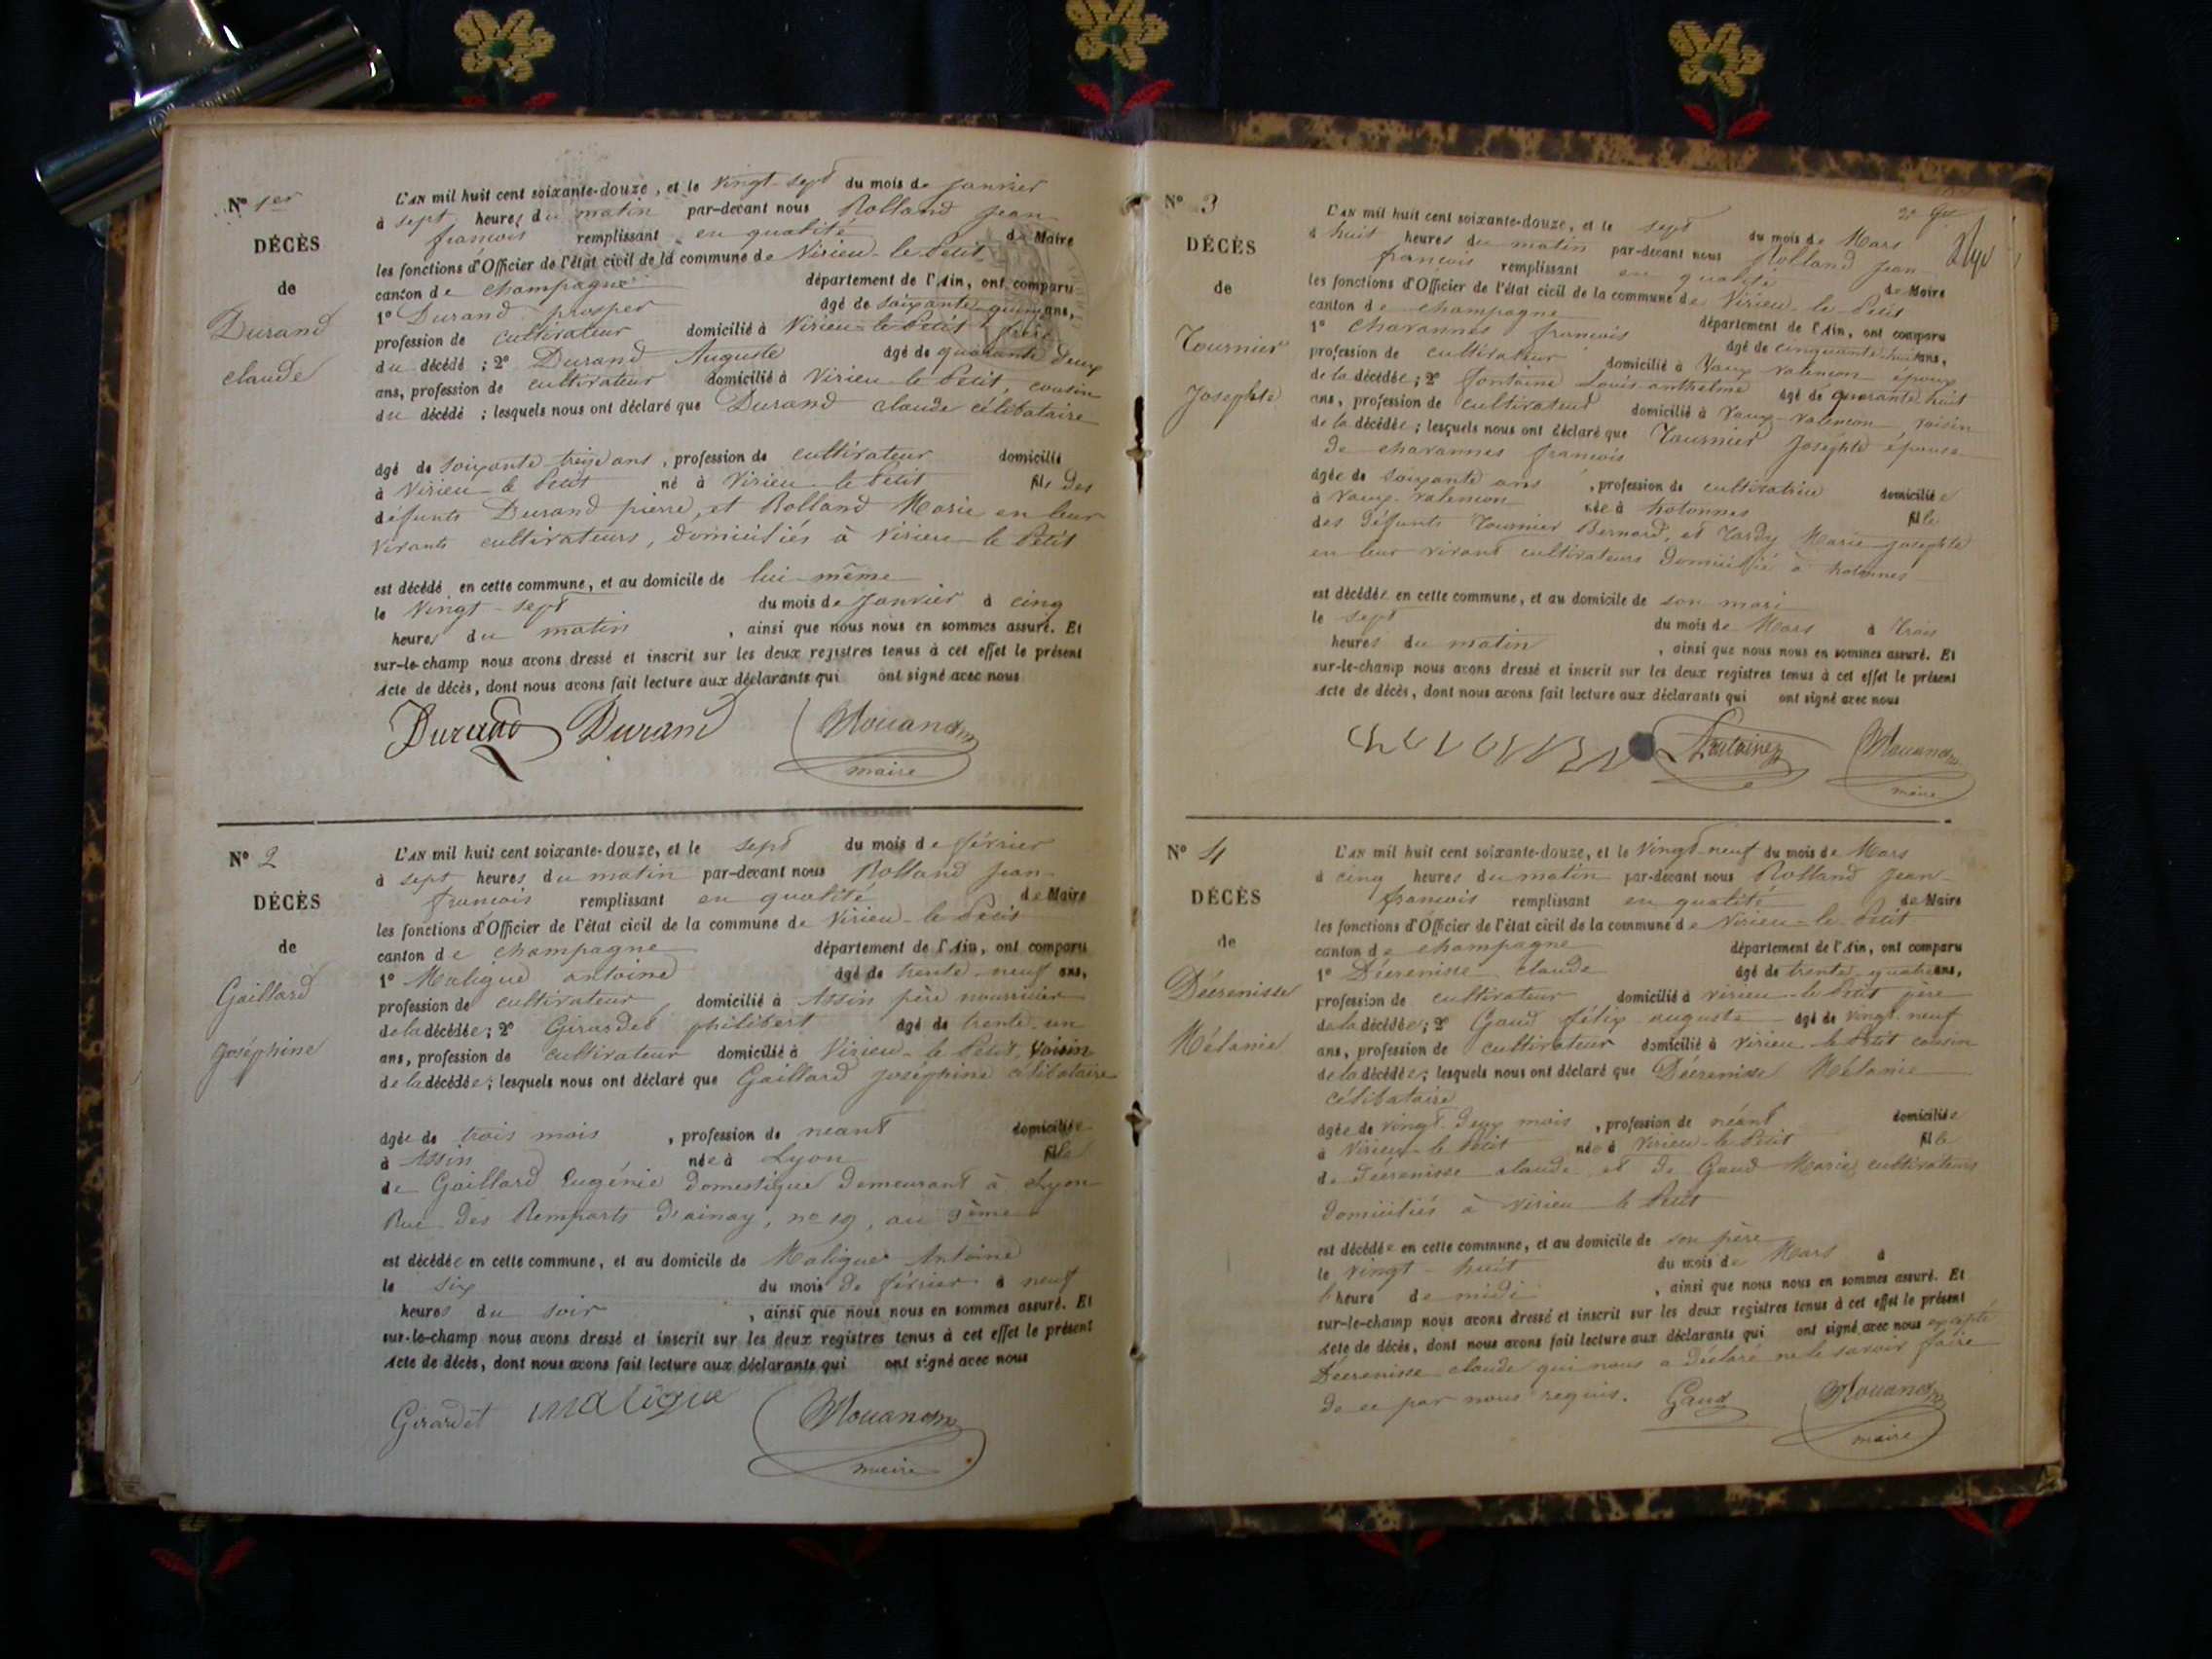 N° 1er
DÉCÈS
de
Durand
claude
L'AN mil huit cent soixante-douze, et le vingt-sept du mois de janvier
à sept heures du matin par-devant nous Rolland jean-
francois remplissant en qualité de Maire
les fonctions d'Officier de l'état civil de la commune de Virieu-le-Petit
canton de champagne département de l'Ain, ont comparu
1° Durand prosper âgé de soixante-quinze ans,
profession de cultivateur domicilié à Virieu-le-Petit frère
du décédé ; 2° Durand Auguste âgé de quarante deux
ans, profession de cultivateur domicilié à Virieu-le-Petit, cousin
du décédé ; lesquels nous ont déclaré que Durand claude célibataire
âgé de soixante treize ans, profession de cultivateur domicilié
à Virieu-le-Petit né à Virieu-le-Petit fils des
défunts Durand pierre, et Rolland Marie en leur
vivants cultivateurs, domiciliés à Virieu-le-Petit
est décédé en cette commune, et au domicile de lui-même
le vingt-sept du mois de janvier à cinq
heures du matin, ainsi que nous nous en sommes assuré. Et
sur-le-champ nous avons dressé et inscrit sur les deux registres tenus à cet effet le présent
Acte de décès, dont nous avons fait lecture aux déclarants qui ont signé avec nous
Durand Durand
maire
N° 2
DÉCÈS
de
Gaillard
joséphine
L'AN mil huit cent soixante-douze, et le sept du mois de février
à sept heures du matin par-devant nous Rolland jean-
francois remplissant en qualité de Maire
les fonctions d'Officier de l'état civil de la commune de Virieu-le-Petit
canton de champagne département de l'Ain, ont comparu
1° Maligue antoine âgé de trente-neuf ans,
profession de cultivateur, domicilié à Assin père nourricier
de la décédée ; 2° Girardet philibert âgé de trente-un
ans, profession de cultivateur domicilié à Virieu-le-Petit, voisin
de la décédée ; lesquels nous ont déclaré que Gaillard joséphine célibataire
âgée de trois mois, profession de néant domiciliée
à Assin née à Lyon fille
de Gaillard Eugénie domestique demeurant à Lyon
Rue des Remparts d'ainay, n° 19, au 3ème
est décédée en cette commune, et au domicile de Maligue Antoine
le six du mois de février à neuf
heures du soir, ainsi que nous nous en sommes assuré. Et
sur-le-champ nous avons dressé et inscrit sur les deux registres tenus à cet effet le présent
Acte de décès, dont nous avons fait lecture aux déclarants qui ont signé avec nous
Girardet maligue
maire
N° 3
DÉCÈS
de
Tournier
Josephte
L'AN mil huit cent soixante-douze, et le sept du mois de Mars
à huit heures du matin par-devant nous Rolland jean-
francois remplissant en qualité de Maire
les fonctions d'Officier de l'état civil de la commune de Virieu-le-Petit
canton de champagne département de l'Ain, ont comparu
1° chavannes francois âgé de cinquante-huit ans,
profession de cultivateur domicilié à Vaux-valencon époux
de la décédée ; 2° fontaine Louis-anthelme âgé de quarante-huit
ans, profession de cultivateur domicilié à Vaux-valencon voisin
de la décédée ; lesquels nous ont déclaré que Tournier Joséphte épouse
de chavannes francois
âgée de soixante ans, profession de cultivatrice domiciliée
à Vaux-valencon née à hotonnes fille
des défunts Tournier Bernard, et Tardy Marie-josephte
en leur vivant cultivateurs domicilié à hotonnes
est décédée en cette commune, et au domicile de son mari
le sept du mois de Mars à trois
heures du matin, ainsi que nous nous en sommes assuré. Et
sur-le-champ nous avons dressé et inscrit sur les deux registres tenus à cet effet le présent
Acte de décès, dont nous avons fait lecture aux déclarants qui ont signé avec nous
maire
N° 4
DÉCÈS
de
Décrenisse
Mélanie
L'AN mil huit cent soixante-douze, et le vingt-neuf du mois de Mars
à cinq heures du matin par-devant nous Rolland jean-
francois remplissant en qualité de Maire
les fonctions d'Officier de l'état civil de la commune de Virieu-le-Petit
canton de champagne département de l'Ain, ont comparu
1° Décrenisse claude âgé de trente-quatre ans,
profession de cultivateur domicilié à virieu-le-Petit père
de la décédée ; 2° Gaud félix auguste âgé de vingt-neuf
ans, profession de cultivateur domicilié à Virieu-le-Petit cousin
de la décédée ; lesquels nous ont déclaré que Décrenisse Mélanie
célibataire
âgée de vingt-deux mois, profession de néant domiciliée
à Virieu-le-Petit née à Virieu-le-Petit fille
de Décrenisse claude et de Gaud Marie, cultivateurs
domiciliés à Virieu-le-Petit
est décédée en cette commune, et au domicile de son père
le vingt-huit du mois de Mars à
l'heure de midi, ainsi que nous nous en sommes assuré. Et
sur-le-champ nous avons dressé et inscrit sur les deux registres tenus à cet effet le présent
Acte de décès, dont nous avons fait lecture aux déclarants qui ont signé avec nous excepté
Décrenisse claude qui nous a déclaré ne le savoir faire
de ce par nous requis. Gaud
maire